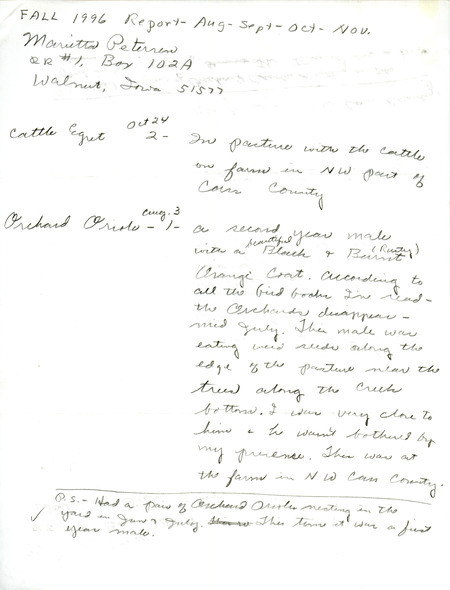 FALL 1996 Report - Aug - Sept - Oct - Nov.
Marietta Petersen
RR #1, Box 102A
Walnut, Iowa 51577
Cattle Egret Oct 24 2 - In pasture with the cattle
on farm in NW part of
Cass County
Orchard Oriole - Aug. 3 1 - a second year male
with a beautiful Black & Burnt (Rusty)
Orange Coat. According to
all the bird books I've read -
the Orchards disappear -
mid July. This male was
eating weed seeds along the
edge of the pasture near the
trees along the Creek
bottom. I was very close to
him & he wasn't bothered by
my presence. This was at
the farm in NW Cass County.
P.S. - Had a pair of Orchard Orioles nesting in the
yard in June & July. This time it was a first
year male.